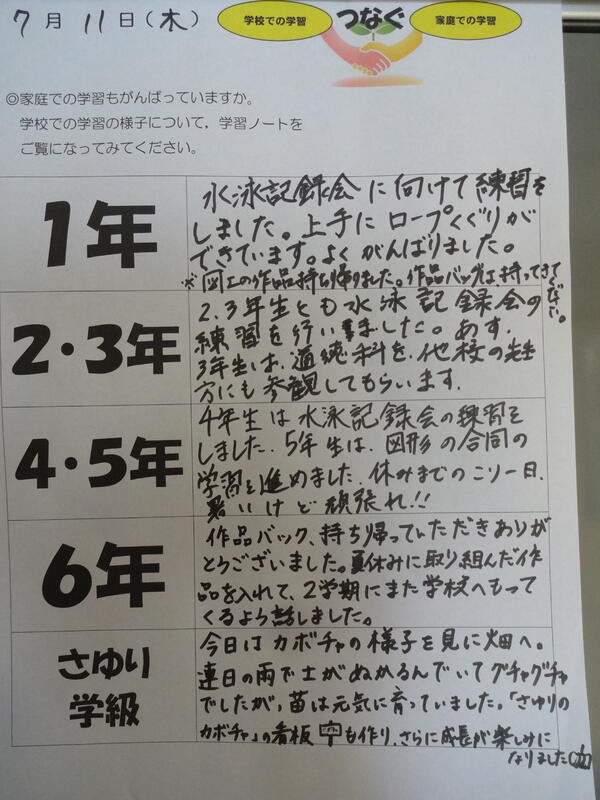 7月11日(木)
学校での学習 つなぐ 家庭での学習
◎家庭での学習もがんばっていますか。
学校での学習の様子について，学習ノートを
ご覧になってみてください。
1年
水泳記録会に向けて練習を
しました。上手にロープくぐりが
できています。よくがんばりました。
※図工の作品持ち帰りました。作品バッグは、持ってきてください。
2・3年
2.3年生とも水泳記録会の
練習を行いました。あす、
3年生は、道徳科を、他校の先生
方にも参観してもらいます。
4・5年
4年生は水泳記録会の練習を
しました。5年生は、図形の合同の
学習を進めました。休みまでのこり一日、
暑いけど頑張れ!!
6年
作品バック、持ち帰っていただきありが
とうございました。夏休みに取り組んだ作
品を入れて、2学期にまた学校へもって
くるよう話しました。
さゆり
学級
今日はカボチャの様子を見に畑へ。
連日の雨で土がぬかるんでいてグチャグチャ
でしたが、苗は元気に育っていました。「さゆりの
カボチャ」の看板も作り、さらに成長が楽しみに
なりました